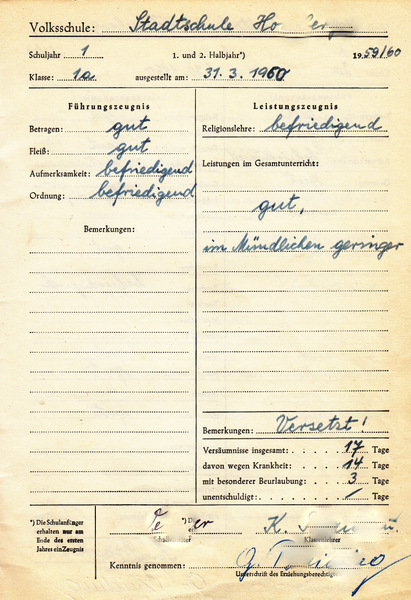 Volksschule: Stadtschule
Schuljahr 1 1. und 2. Halbjahr*) 1959/60
Klasse: 1a ausgestellt am: 31. 3. 1960
Führungszeugnis
Betragen: gut
Fleiß: gut
Aufmerksamkeit: befriedigend
Ordnung: befriedigend
Bemerkungen:
Leistungszeugnis
Religionslehre: befriedigend
Leistungen im Gesamtunterricht:
gut,
im Mündlichen geringer
Bemerkungen: Versetzt!
Versäumnisse insgesamt: . . . . . 17 Tage
davon wegen Krankheit: . . . . 14 Tage
mit besonderer Beurlaubung: . . 3 Tage
unentschuldigt: . . . . . . . / Tage
*) Die Schulanfänger
erhalten nur am
Ende des ersten
Jahres ein Zeugnis
K.
Klassenlehrer
Kenntnis genommen:
Unterschrift des Erziehungsberechtigten